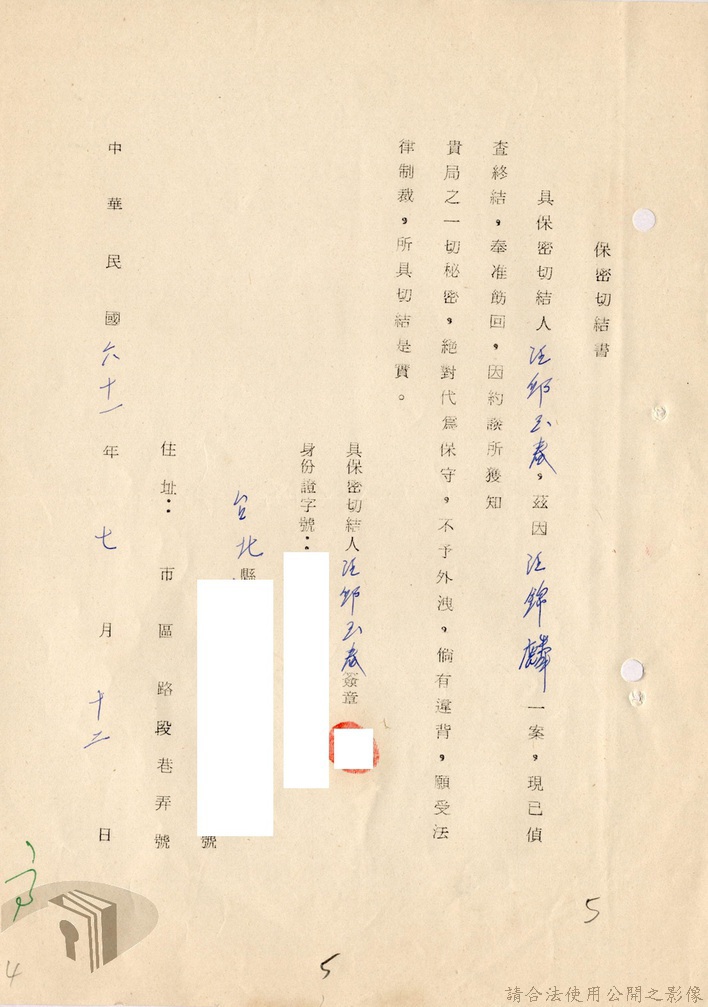 保密切結書
具保密切結人汪鄒玉春,茲因汪錦麟一案,現已偵
查終結,奉准飭回,因約談所獲知
貴局之一切秘密,絕對代為保守,不予外洩,倘有違背,願受法
律制裁,所具切結是實。
具保密切結人汪鄒玉春簽章
身份證字號:
台北縣
號
住址:市區路段巷弄號
中華民國六十一年七月十二日
5
5
4
請合法使用公開之影像